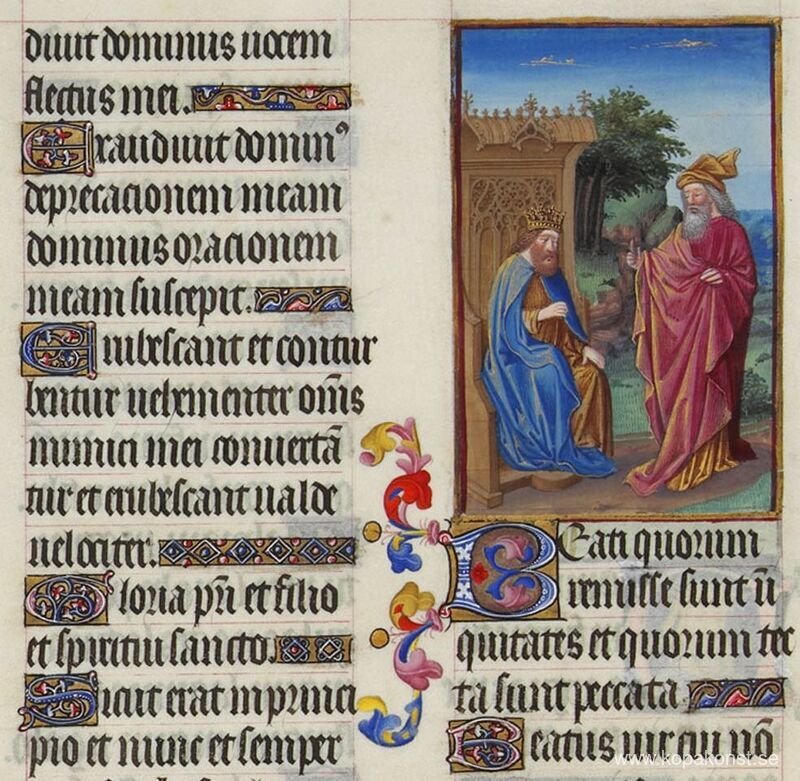 diuit dominus uocem
fletus mei.
Exaudiuit domin⁹
deprecacionem meam
dominus oracionem
meam suscepit.
Erubescant et contur
bentur uehementer om̄s
inimici mei conuertā
tur et erubescant ualde
uelociter.
Gloria pr̄i et filio
et spiritui sancto.
Sicut erat in princi
pio et nunc et semper
Beati quorum
remisse sunt ī
quitates et quorum tec
ta sunt peccata.
Beatus uir cui nō
www.kopakonst.se